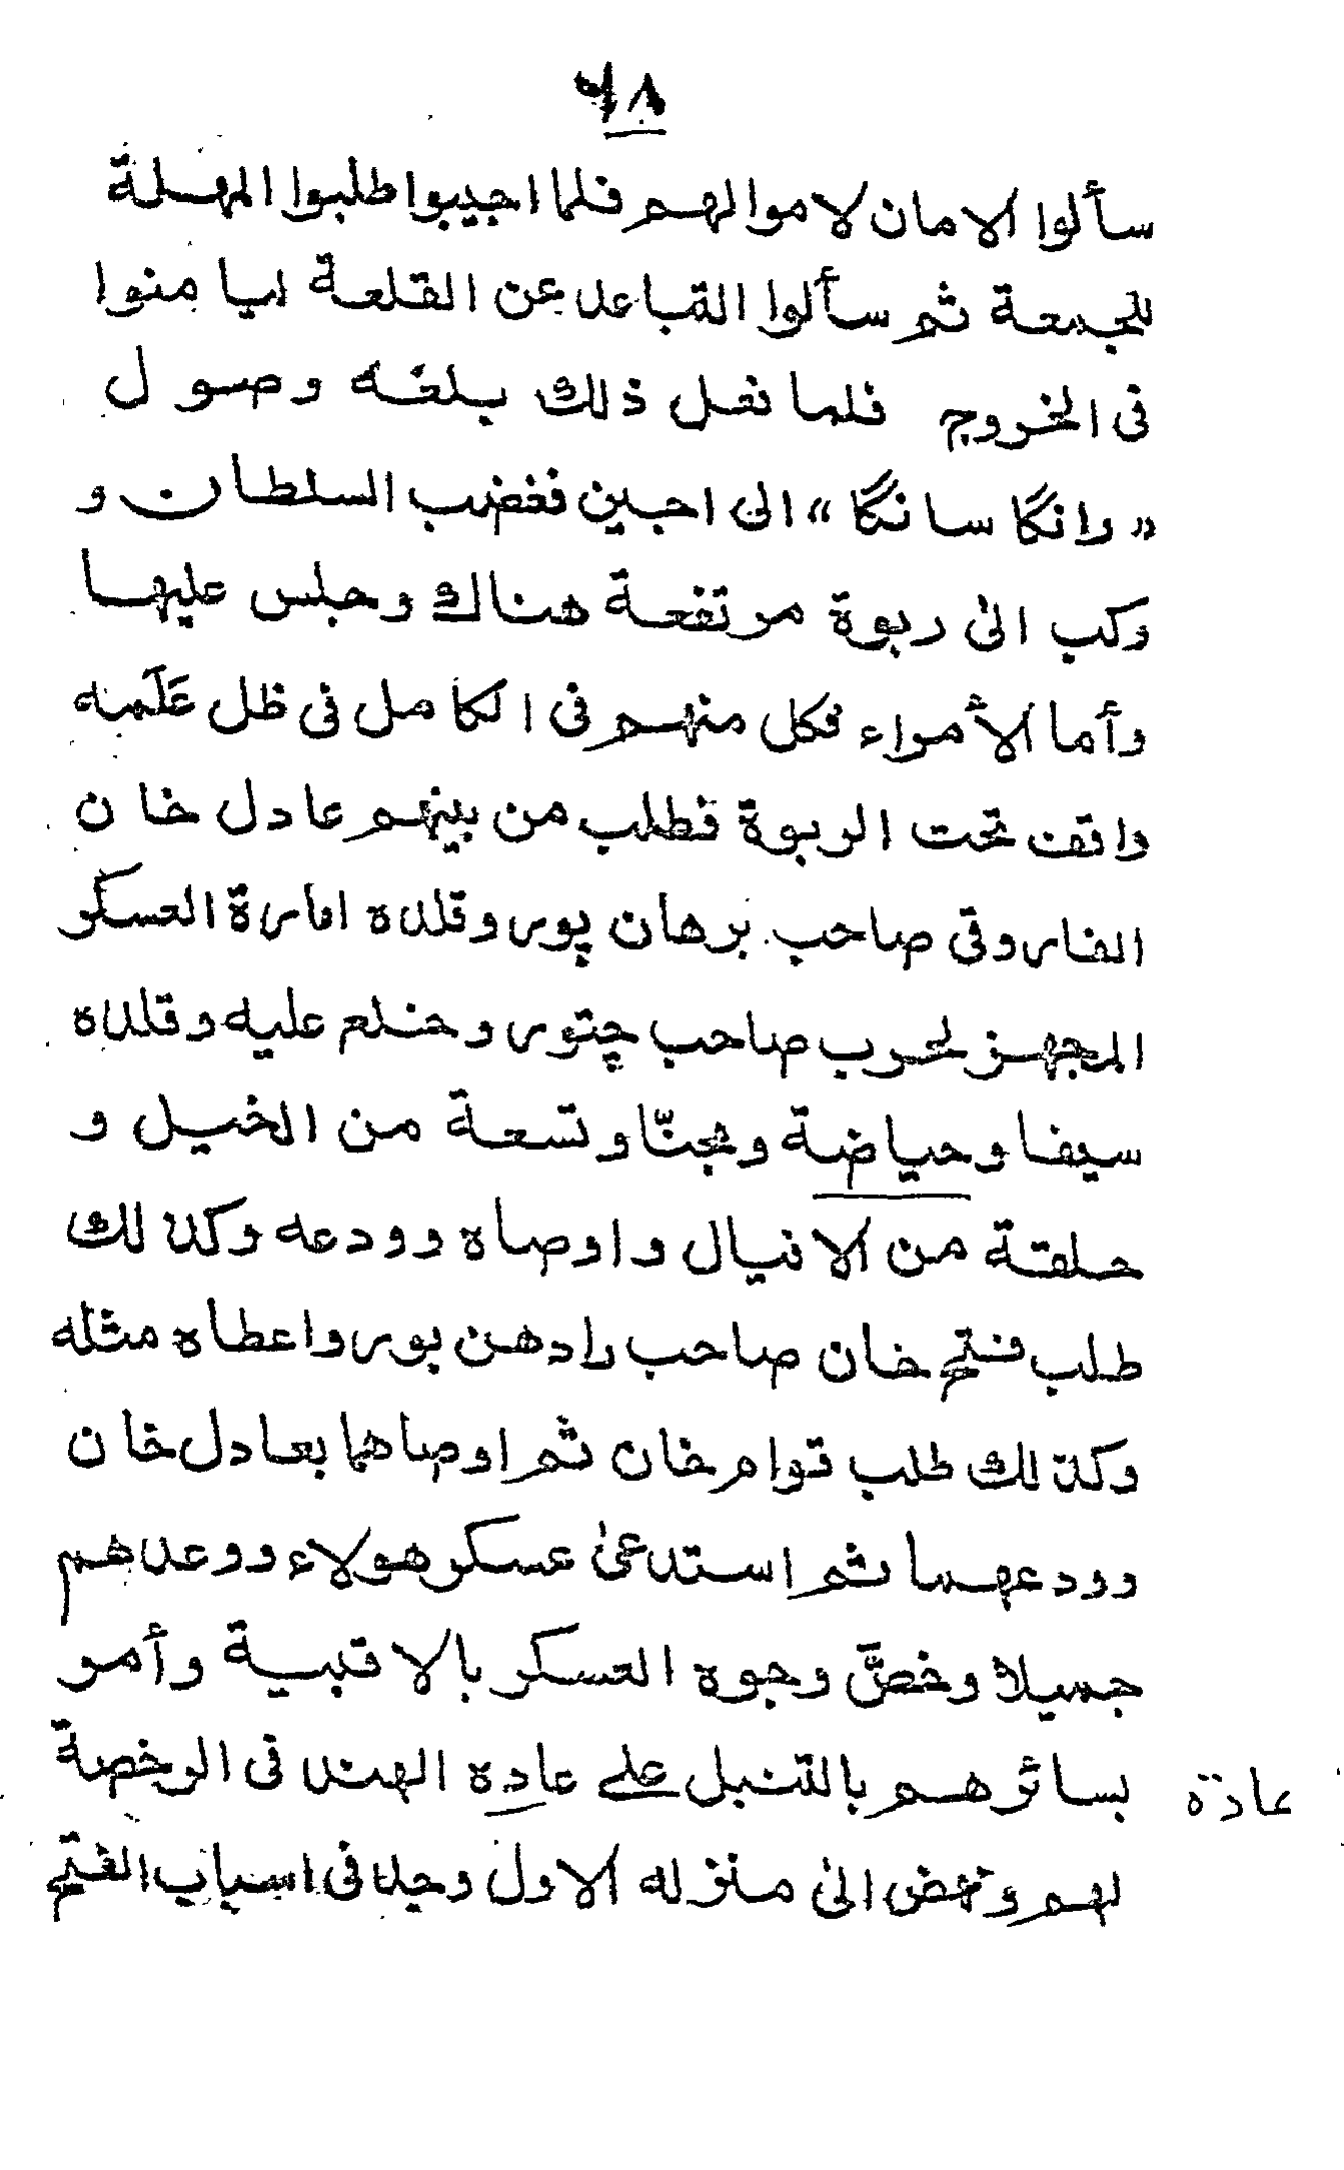 ٦٨
سألوا الامان لاموالهم فلما اجيبوا طلبوا المهلة
للجمعة ثم سألوا التباعد عن القلعة ليامنوا
فى الخروج فلما فعل ذلك بلغه وصول
«رانگا سانگا» الى اجين فغضب السلطان و
ركب الى ربوة مرتفعة هناك وجلس عليها
وأما الأمراء فكل منهم فى الكامل فى ظل عَلَمه
واقف تحت الربوة فطلب من بينهم عادل خان
الفاروقى صاحب برهان پور وقلده امارة العسكر
المجهز لحرب صاحب چتور وخلع عليه وقلده
سيفا وحياضة ومجنّا وتسعة من الخيل و
حلقة من الافيال واوصاه وودعه وكذلك
طلب فتح خان صاحب رادهن پور واعطاه مثله
وكذلك طلب قوام خان ثم اوصاهما بعادل خان
وودعهما ثم استدعى عسكر هولاء ووعدهم
جميلا وخصّ وجوه العسكر بالاقبية وأمر
بسائرهم بالتنبل على عاده الهند فى الرخصة
عادة
لهم ونهض الى منزله الاول وجد فى اسباب الفتح